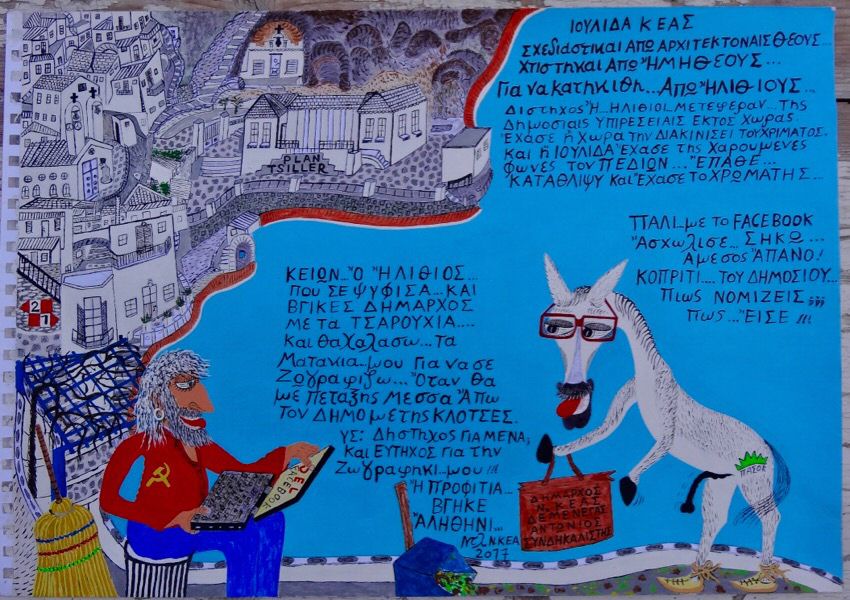 ΙΟΥΛΙΔΑ ΚΕΑΣ
ΣΧΕΔΙΑΣΤΙΚΑΙ ΑΠΩ ΑΡΧΙΤΕΚΤΟΝΑΙΣ ΘΕΟΥΣ...
ΧΤΙΣΤΗΚΑΙ ΑΠΩ "ΗΜΗΘΕΟΥΣ...
Για να κατηκιθη... ΑΠΩ "ΗΛΙΘΙΟΥΣ...
Διστηχος Ή... ΗΛΙΘΙΟΙ... ΜΕΤΕΦΕΡΑΝ... της
Δημοσιαις ΥΠΡΕΣΕΙΑΙΣ ΕΚΤΟΣ Χωρας
ΈΧΑΣΕ ή Χωρα την ΔΙΑΚΙΝΙΣΕΙ ΤΟΥ ΧΡΙΜΑΤΟΣ.
Και ή ΙΟΥΛΙΔΑ ΈΧΑΣΕ της ΧΑΡΟΥΜΕΝΕΣ
Φωνες του ΠΕΔΙΩΝ... "ΕΠΑΘΕ...
ΚΑΤΑΘΛΙΨΥ και ΈΧΑΣΕ Το ΧΡΩΜΑ ΤΗΣ...
PLAN
TSILLER
ΠΑΛΙ... με το FACEBOOK
"Ασχωλισε... ΣΗΚΩ...
Αμεσος "ΑΠΑΝΟ!
ΚΟΠΡΙΤΙ.... ΤΟΥ ΔΗΜΟΣΙΟΥ...
Πιως ΝΟΜΙΖΕΙΣ ;;;
Πως... "ΕΙΣΕ !!!
ΚΕΙΩΝ... "Ο "ΗΛΙΘΙΟΣ...
που ΣΕ ΨΥΦΙΣΑ... ΚΑΙ
ΒΓΙΚΕΣ ΔΗΜΑΡΧΟΣ
ΜΕ τα ΤΣΑΡΟΥΧΙΑ....
Και θα χαλασω... τα
Ματανια... μου Για να σε
Ζωγραφιζω... "Οταν θα
με ΠΕΤΑΞΗΣ ΜΕΣΣΑ "Απω
τον ΔΗΜΟ με της ΚΛΟΤΣΕΣ.
ΥΣ: Δηστηχος ΓΙΑ ΜΕΝΑ,
και ΕΥΤΗΧΟΣ για την
Ζωγραφηκι... μου !!!
"Η ΠΡΟΦΙΤΙΑ...
ΒΓΗΚΕ
"ΑΛΗΘΗΝΙ...
Ν. ΚΕΑ
2017
2
1
DEL
FACEBOOK
ΠΑΣΟΚ
ΔΗΜΑΡΧΟΣ
Ν. ΚΕΑΣ
ΔΕΜΕΝΕΓΑΣ
ΑΝΤΩΝΙΟΣ
ΣΥΝΔΗΚΑΛΙΣΤΗΣ